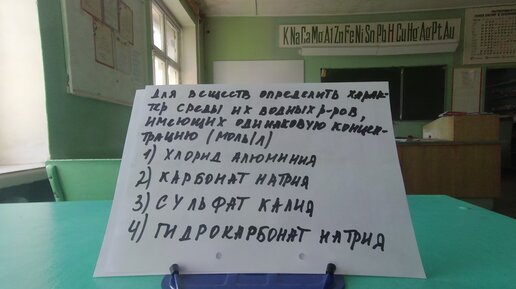 K Na Ca Mg Al Zn Fe Ni Sn Pb H Cu Hg Ag Pt Au
Для веществ определить харак-
тер среды их водных р-ров,
имеющих одинаковую концен-
трацию (моль/л)
1) Хлорид алюминия
2) Карбонат натрия
3) Сульфат калия
4) Гидрокарбонат натрия